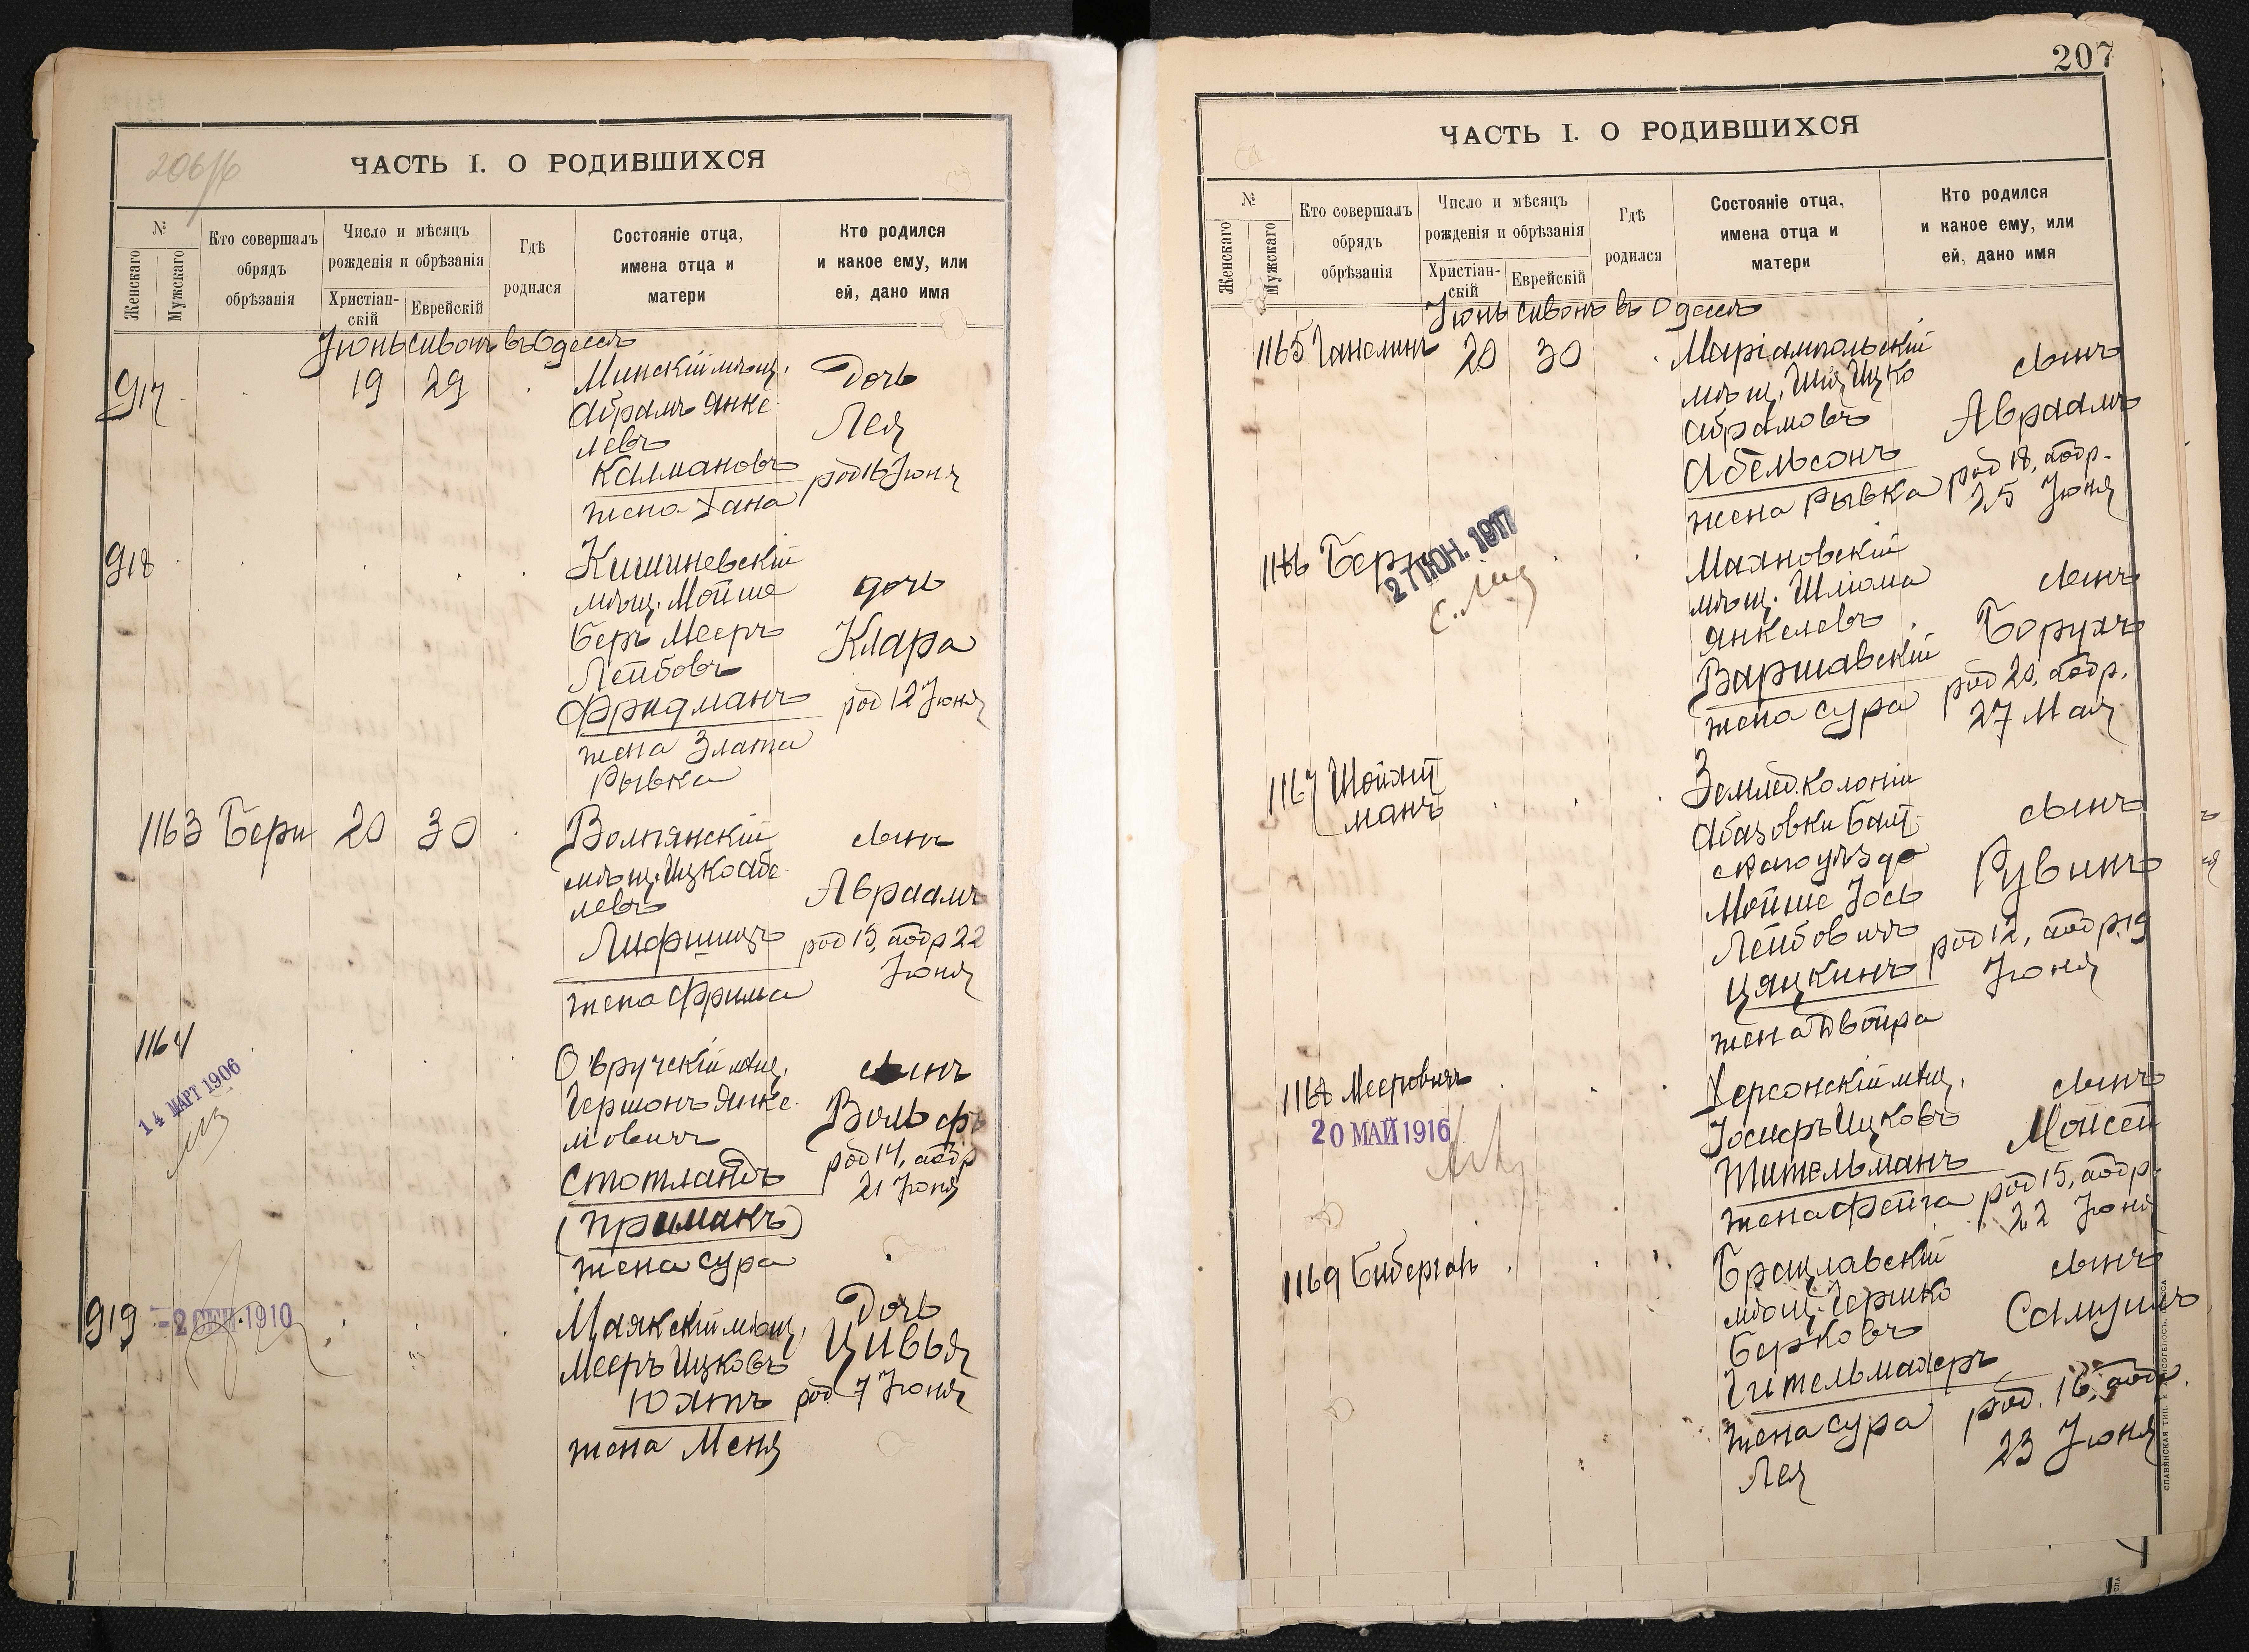 206/б
ЧАСТЬ I. О РОДИВШИХСЯ
№
Женскаго
Мужскаго
Кто совершалъ
обрядъ
обрѣзанія
Число и мѣсяцъ
рожденія и обрѣзанія
Христіан-
скій
Еврейскій
Гдѣ
родился
Состояніе отца,
имена отца и
матери
Кто родился
и какое ему, или
ей, дано имя
Іюнь сивонъ въ Одессѣ
917 19 29 Минскій мѣщ. Дочь
Абрамъ Янке-
левъ Лея
Калмановъ род 16 Іюня
жена Хана
918 Кишиневскій
мѣщ. Мойше дочь
Беръ Мееръ Клара
Лейбовъ
Фридманъ род 12 Іюня
жена Злата
Рывка
1163 Бери 20 30 Волпянскій сынъ
мѣщ. Ицко Абе-
левъ Авраамъ
Лифшицъ род 15, аобр 22
жена Фрима Іюня
1164 Овручскій мѣщ. сынъ
14 МАРТ 1906
Гершонъ Янке-
лiовичъ Вольфъ
Стотландъ род 14, аобр
21 Іюня
(Приманъ)
жена Сура
919 -2 СЕН. 1910 Маякскій мѣщ. Дочь
Мееръ Ицковъ Цивья
Юхтъ род 7 Іюня
жена Меня
207
ЧАСТЬ I. О РОДИВШИХСЯ
№
Женскаго
Мужскаго
Кто совершалъ
обрядъ
обрѣзанія
Число и мѣсяцъ
рожденія и обрѣзанія
Христіан-
скій
Еврейскій
Гдѣ
родился
Состояніе отца,
имена отца и
матери
Кто родился
и какое ему, или
ей, дано имя
Іюнь сивонъ въ Одессѣ
1165 Ганелинъ 20 30 Маріампольскій
мѣщ. Шія Ицко сынъ
Абрамовъ Авраамъ
Абельсонъ род 18, аобр.
жена Рывка 25 Іюня
1166 Бери 27 ІЮН. 1917 Маяновскій
мѣщ. Шлiома сынъ
Янкелевъ Борухъ
Варшавскій род 20, аобр.
жена Сура 27 Мая
1167 Шойхт
манъ
Землед. колоніи
Абазовки Балт- сынъ
скаго уѣзда
Мойше Іось Рувинъ
Лейбовичъ род 12, аобр. 19
Цяцкинъ Іюня
жена Двойра
1168 Мееровичъ Херсонскій мѣщ. сынъ
20 МАЙ 1916
Іосиеръ Ицковъ Мойсей
Тительманъ род 15, аобр.
жена Фейга 22 Іюня
1169 Бибергалъ Брацлавскій сынъ
мѣщ. Гершко
Берковъ Самуилъ
Гительмахеръ
жена Сура род. 16. аобр.
Лея 23 Іюня